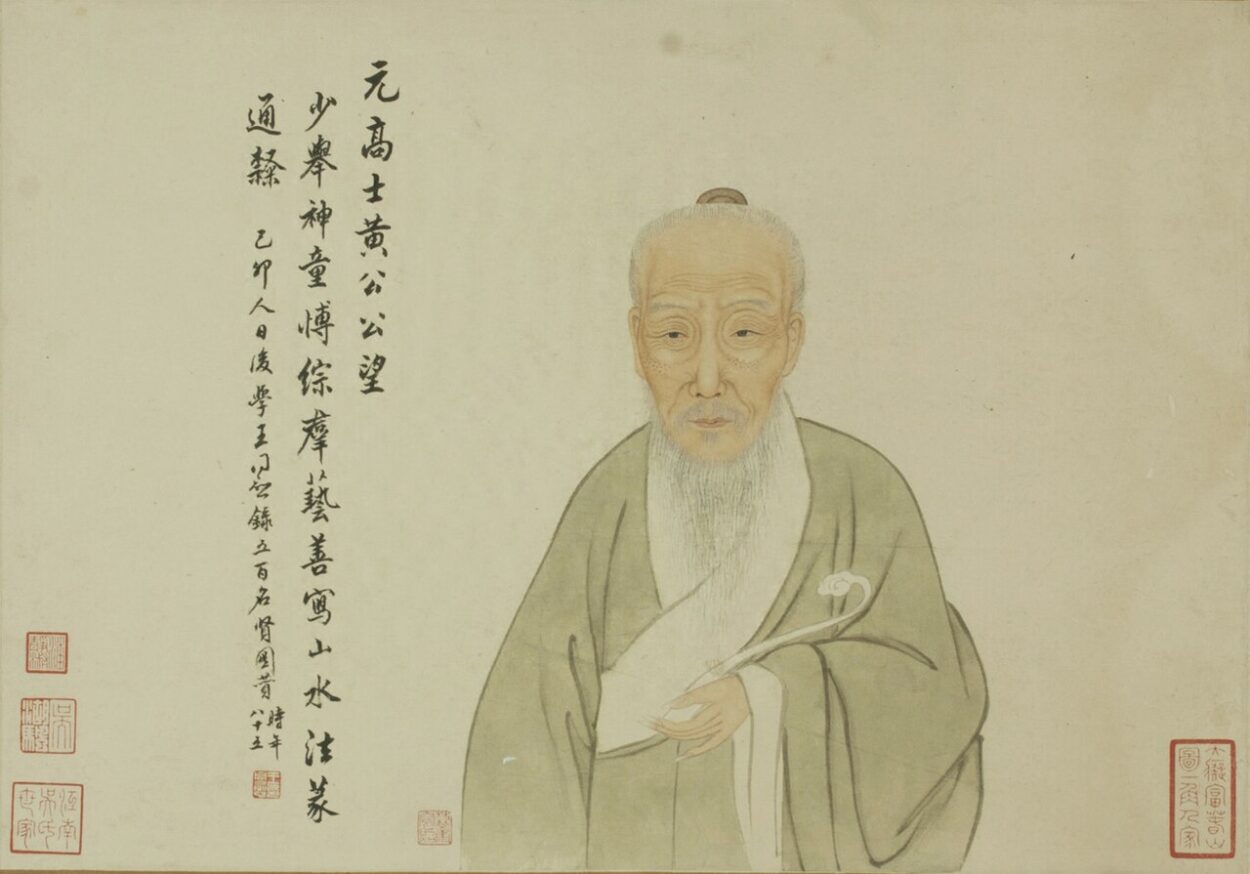 元高士黄公公望
少舉神童愽綜羣藝善寫山水法篆
通隸 己卯人日後學王同愈錄五百名賢圖贊 時年八十五
大癡富春山圖一角人家
吳湖颿
江南吳氏世家